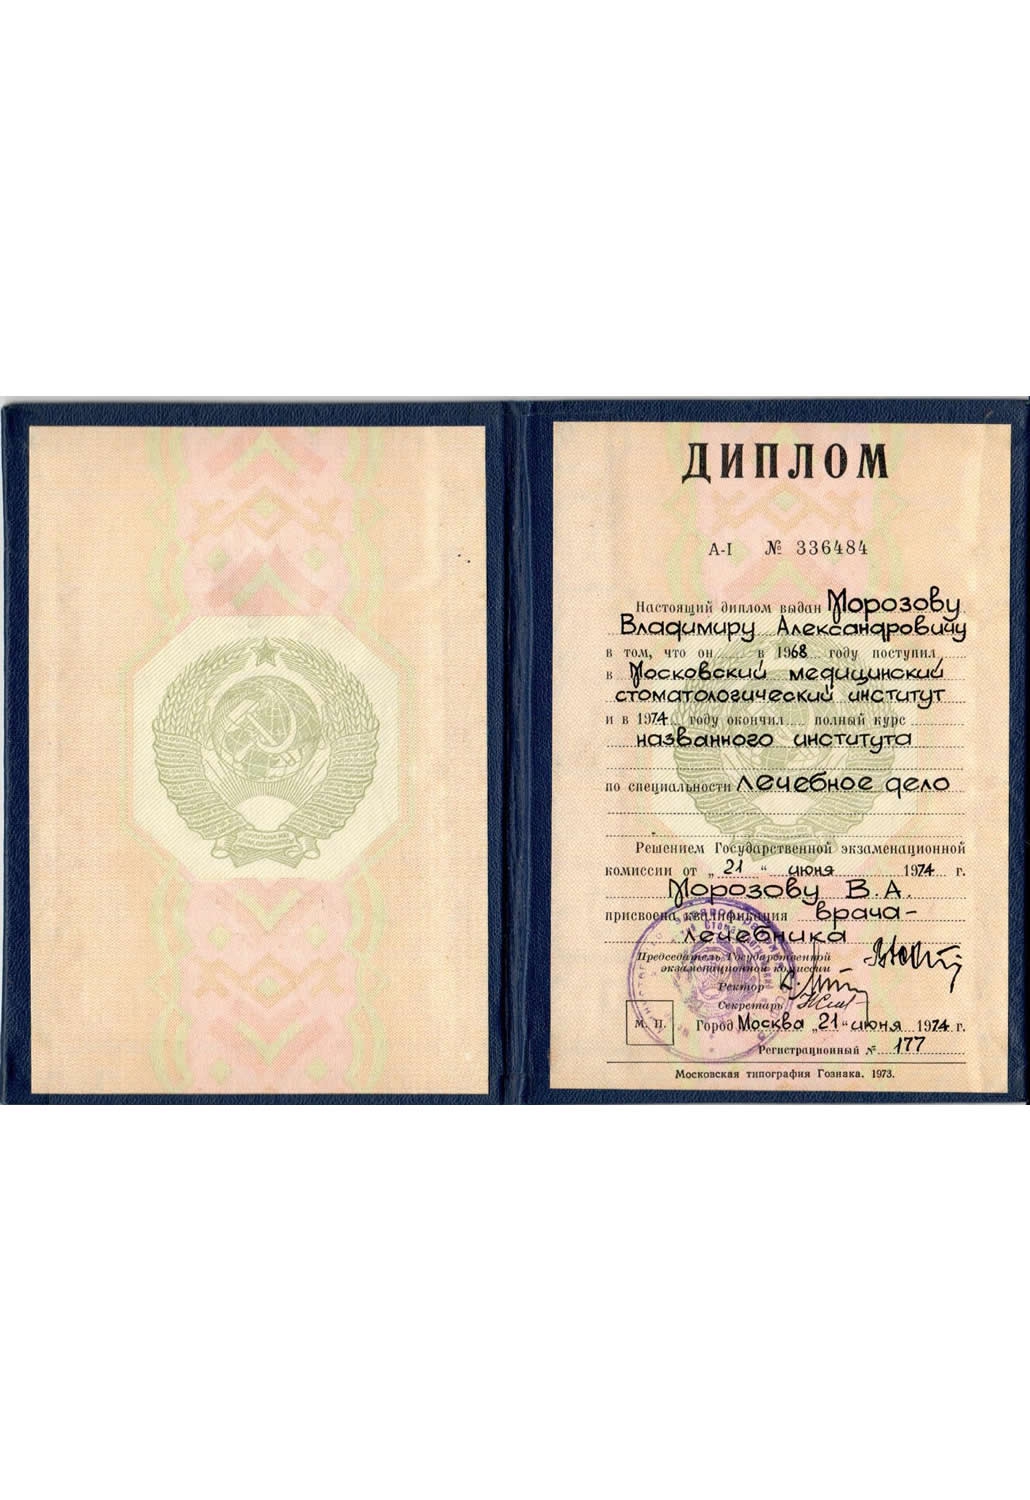 ДИПЛОМ
А-I № 336484
Настоящий диплом выдан Морозову
Владимиру Александровичу
в том, что он в 1968 году поступил
в Московский медицинский
стоматологический институт
и в 1974 году окончил полный курс
названного института
по специальности лечебное дело
Решением Государственной экзаменационной
комиссии от „ 21 “ июня 1974 г.
Морозову В.А.
присвоена квалификация врача-
лечебника
Председатель Государственной
экзаменационной комиссии
Ректор
Секретарь
М. П. Город Москва „21“ июня 1974 г.
Регистрационный № 177
Московская типография Гознака. 1973.